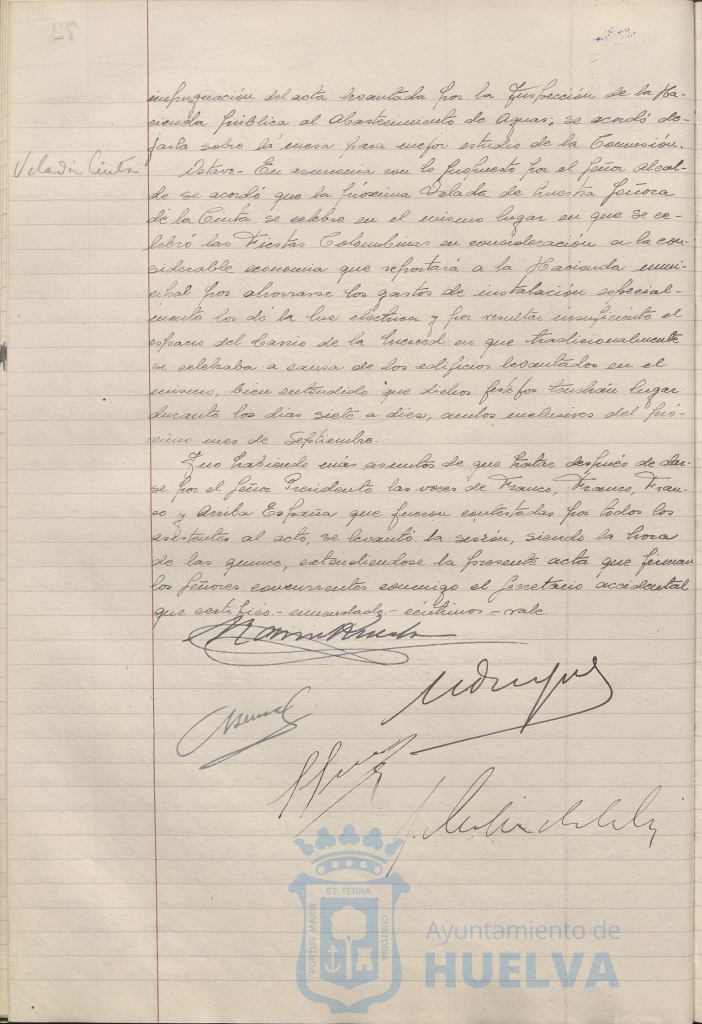 impugnación del acta levantada por la Inspección de la Ha-
cienda pública al Abastecimiento de Aguas, se acordó de-
jarla sobre la mesa para mejor estudio de la Comisión.
Velada Cinta
Octavo.- En armonia con lo propuesto por el Señor Alcal-
de se acordó que la próxima Velada de Nuestra Señora
de la Cinta se celebre en el mismo lugar en que se ce-
lebró las Fiestas Colombinas en consideración a la con-
siderable economia que reportará a la Hacienda muni-
cipal por ahorrarse los gastos de instalación especial-
mente los de la luz eléctrica y por resultar insuficiente el
espacio del barrio de la Merced en que tradicionalmente
se celebraba a causa de los edificios levantados en el
mismo, bien entendido que dichos festejos tendrán lugar
durante los dias siete a diez, ambos inclusives del pró-
ximo mes de Septiembre.
Y no habiendo más asuntos de que tratar después de dar-
se por el Señor Presidente las voces de Franco, Franco, Fran-
co y Arriba España que fueron contestadas por todos los
asistentes al acto, se levantó la sesión, siendo la hora
de las quince, extendiendose la presente acta que firman
los Señores concurrentes conmigo el Secretario accidental
que certifico.- enmendado.- céntimos - vale.
PORTUS MARIS
ET TERRÆ
CUSTODIA
Ayuntamiento de
HUELVA